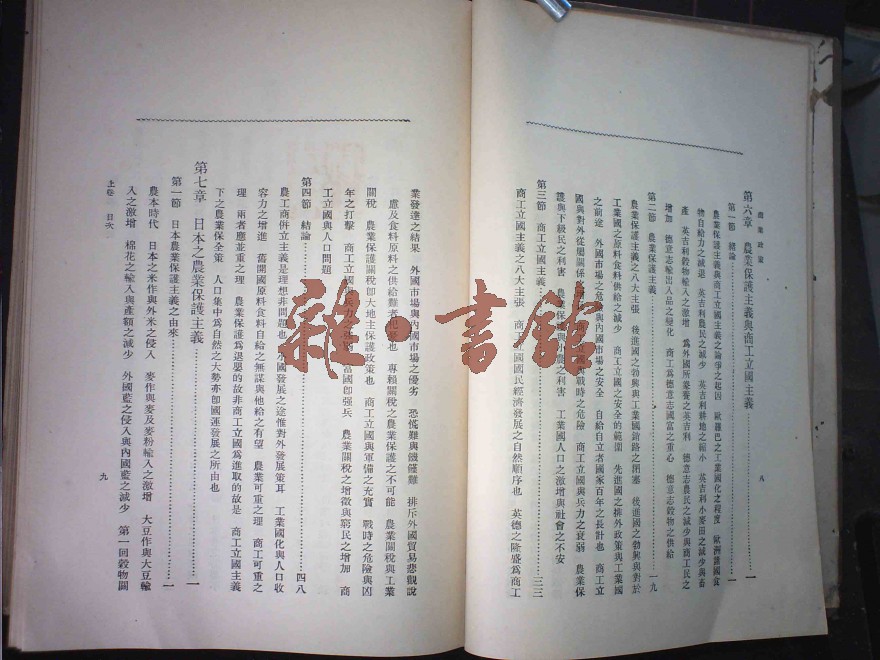 農業政策
八
第六章 農業保護主義與商工立國主義……一
第一節 緒論……一
農業保護主義與商工立國主義之論爭之起因 歐羅巴之工業國化之程度 歐洲諸國食
物自給力之減退 英吉利農民之減少 英吉利耕地之縮小 英吉利小麥田之減少與畜
產 英吉利穀物輸入之激增 爲外國所豢養之英吉利 德意志農民之減少與商工民之
增加 德意志輸出入品之變化 商工爲德意志國富之重心 德意志穀物之供給
第二節 農業保護主義……一九
農業保護主義之八大主張 後進國之勃興與工業國銷路之閉塞 後進國之勃興與對於
工業國之原料食料供給之減少 商工立國之安全的範圍 先進國之排外政策與工業國
之前途 外國市場之危險與內國市場之安全 自給自立者國家百年之長計也 商工立
國與對外從屬關係 商工 戰時之危險 商工立國與兵力之衰弱 農業保
護與下級民之利害 農業保護與 農之利害 工業國人口之激增與社會之不安
第三節 商工立國主義……三三
商工立國主義之八大主張 商 國國民經濟發展之自然順序也 英德之隆盛爲商工
業發達之結果 外國市場與內國市場之優劣 恐慌難與饑饉難 排斥外國貿易悲觀說
慮及食料原料之供給難者杞憂也 專賴關稅之農業保護之不可能 農業關稅與工業
關稅 農業保護關稅卽大地主保護政策也 商工立國與軍備之充實 戰時之危險與凶
年之打擊 商工立國與兵力之強弱 富國卽强兵 農業關稅之增徵與窮民之增加 商
工立國與人口問題
第四節 結論……四八
農工商併立主義是理想非問題也 小國發展之途惟對外發展策耳 工業國化與人口收
容力之增進 舊開國原料食料自給之無謀與他給之有望 農業可重之理 商工可重之
理 兩者應並重之理 農業保護爲退嬰的故非商工立國爲進取的故是 商工立國主義
下之農業保全策 人口集中爲自然之大勢亦卽國運發展之所由也
第七章 日本之農業保護主義……一
第一節 日本農業保護主義之由來……一
農本時代 日本之米作與外米之侵入 麥作與麥及麥粉輸入之激增 大豆作與大豆輸
入之激增 棉花之輸入與產額之減少 外國藍之侵入與內國藍之減少 第一回穀物關
上卷 目次
九
雜·書館